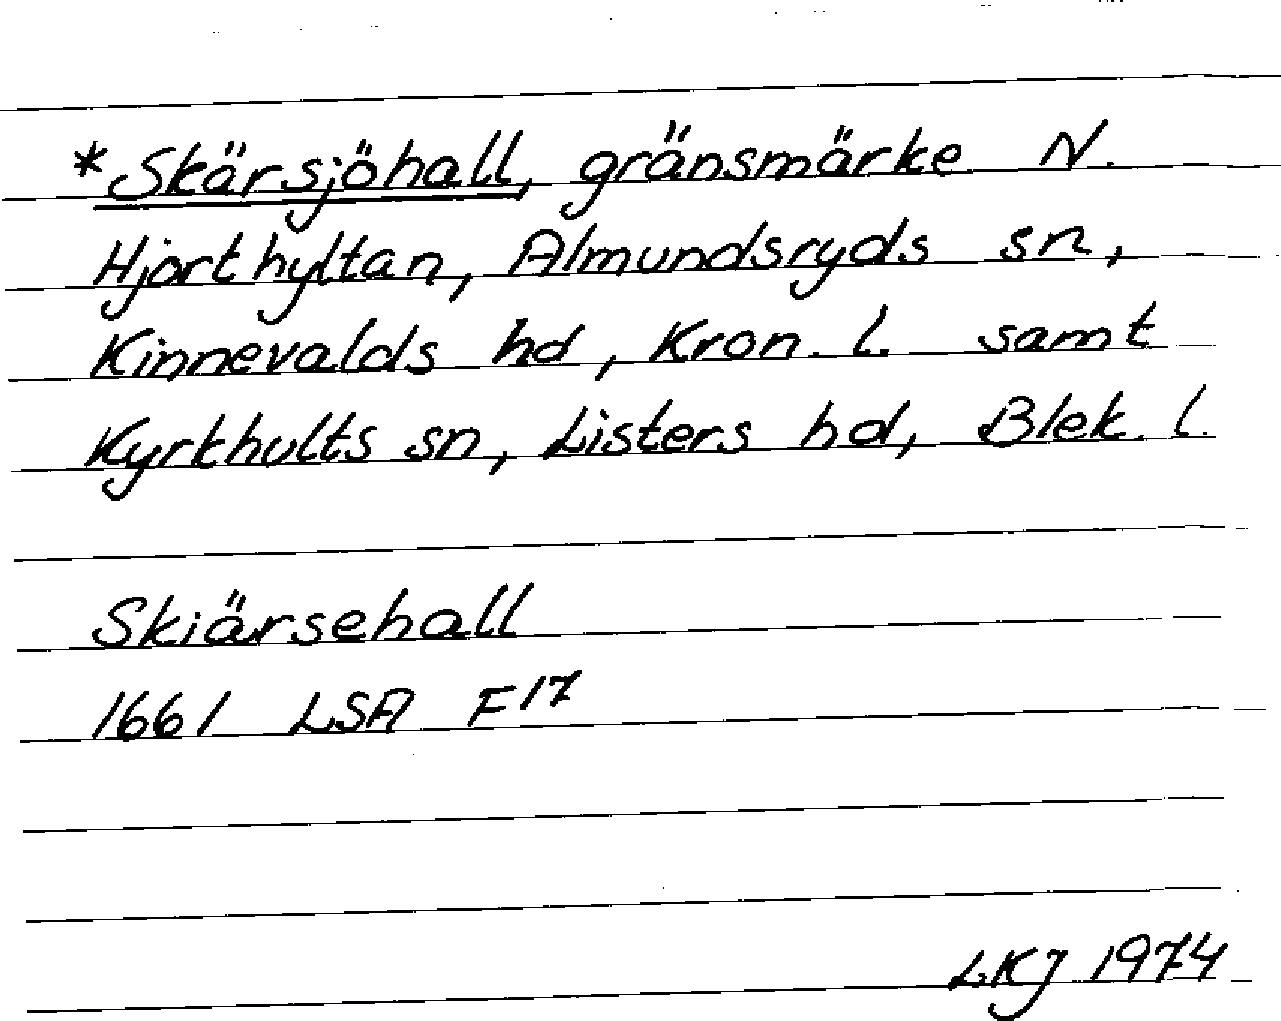 *Skärsjöhall, gränsmärke N.
Hjorthyltan, Almundsryds sn,
Kinnevalds hd, Kron. l. samt
Kyrkhults sn, Listers hd, Blek. l.
Skiärsehall
1661 LSA F17
LKJ 1974